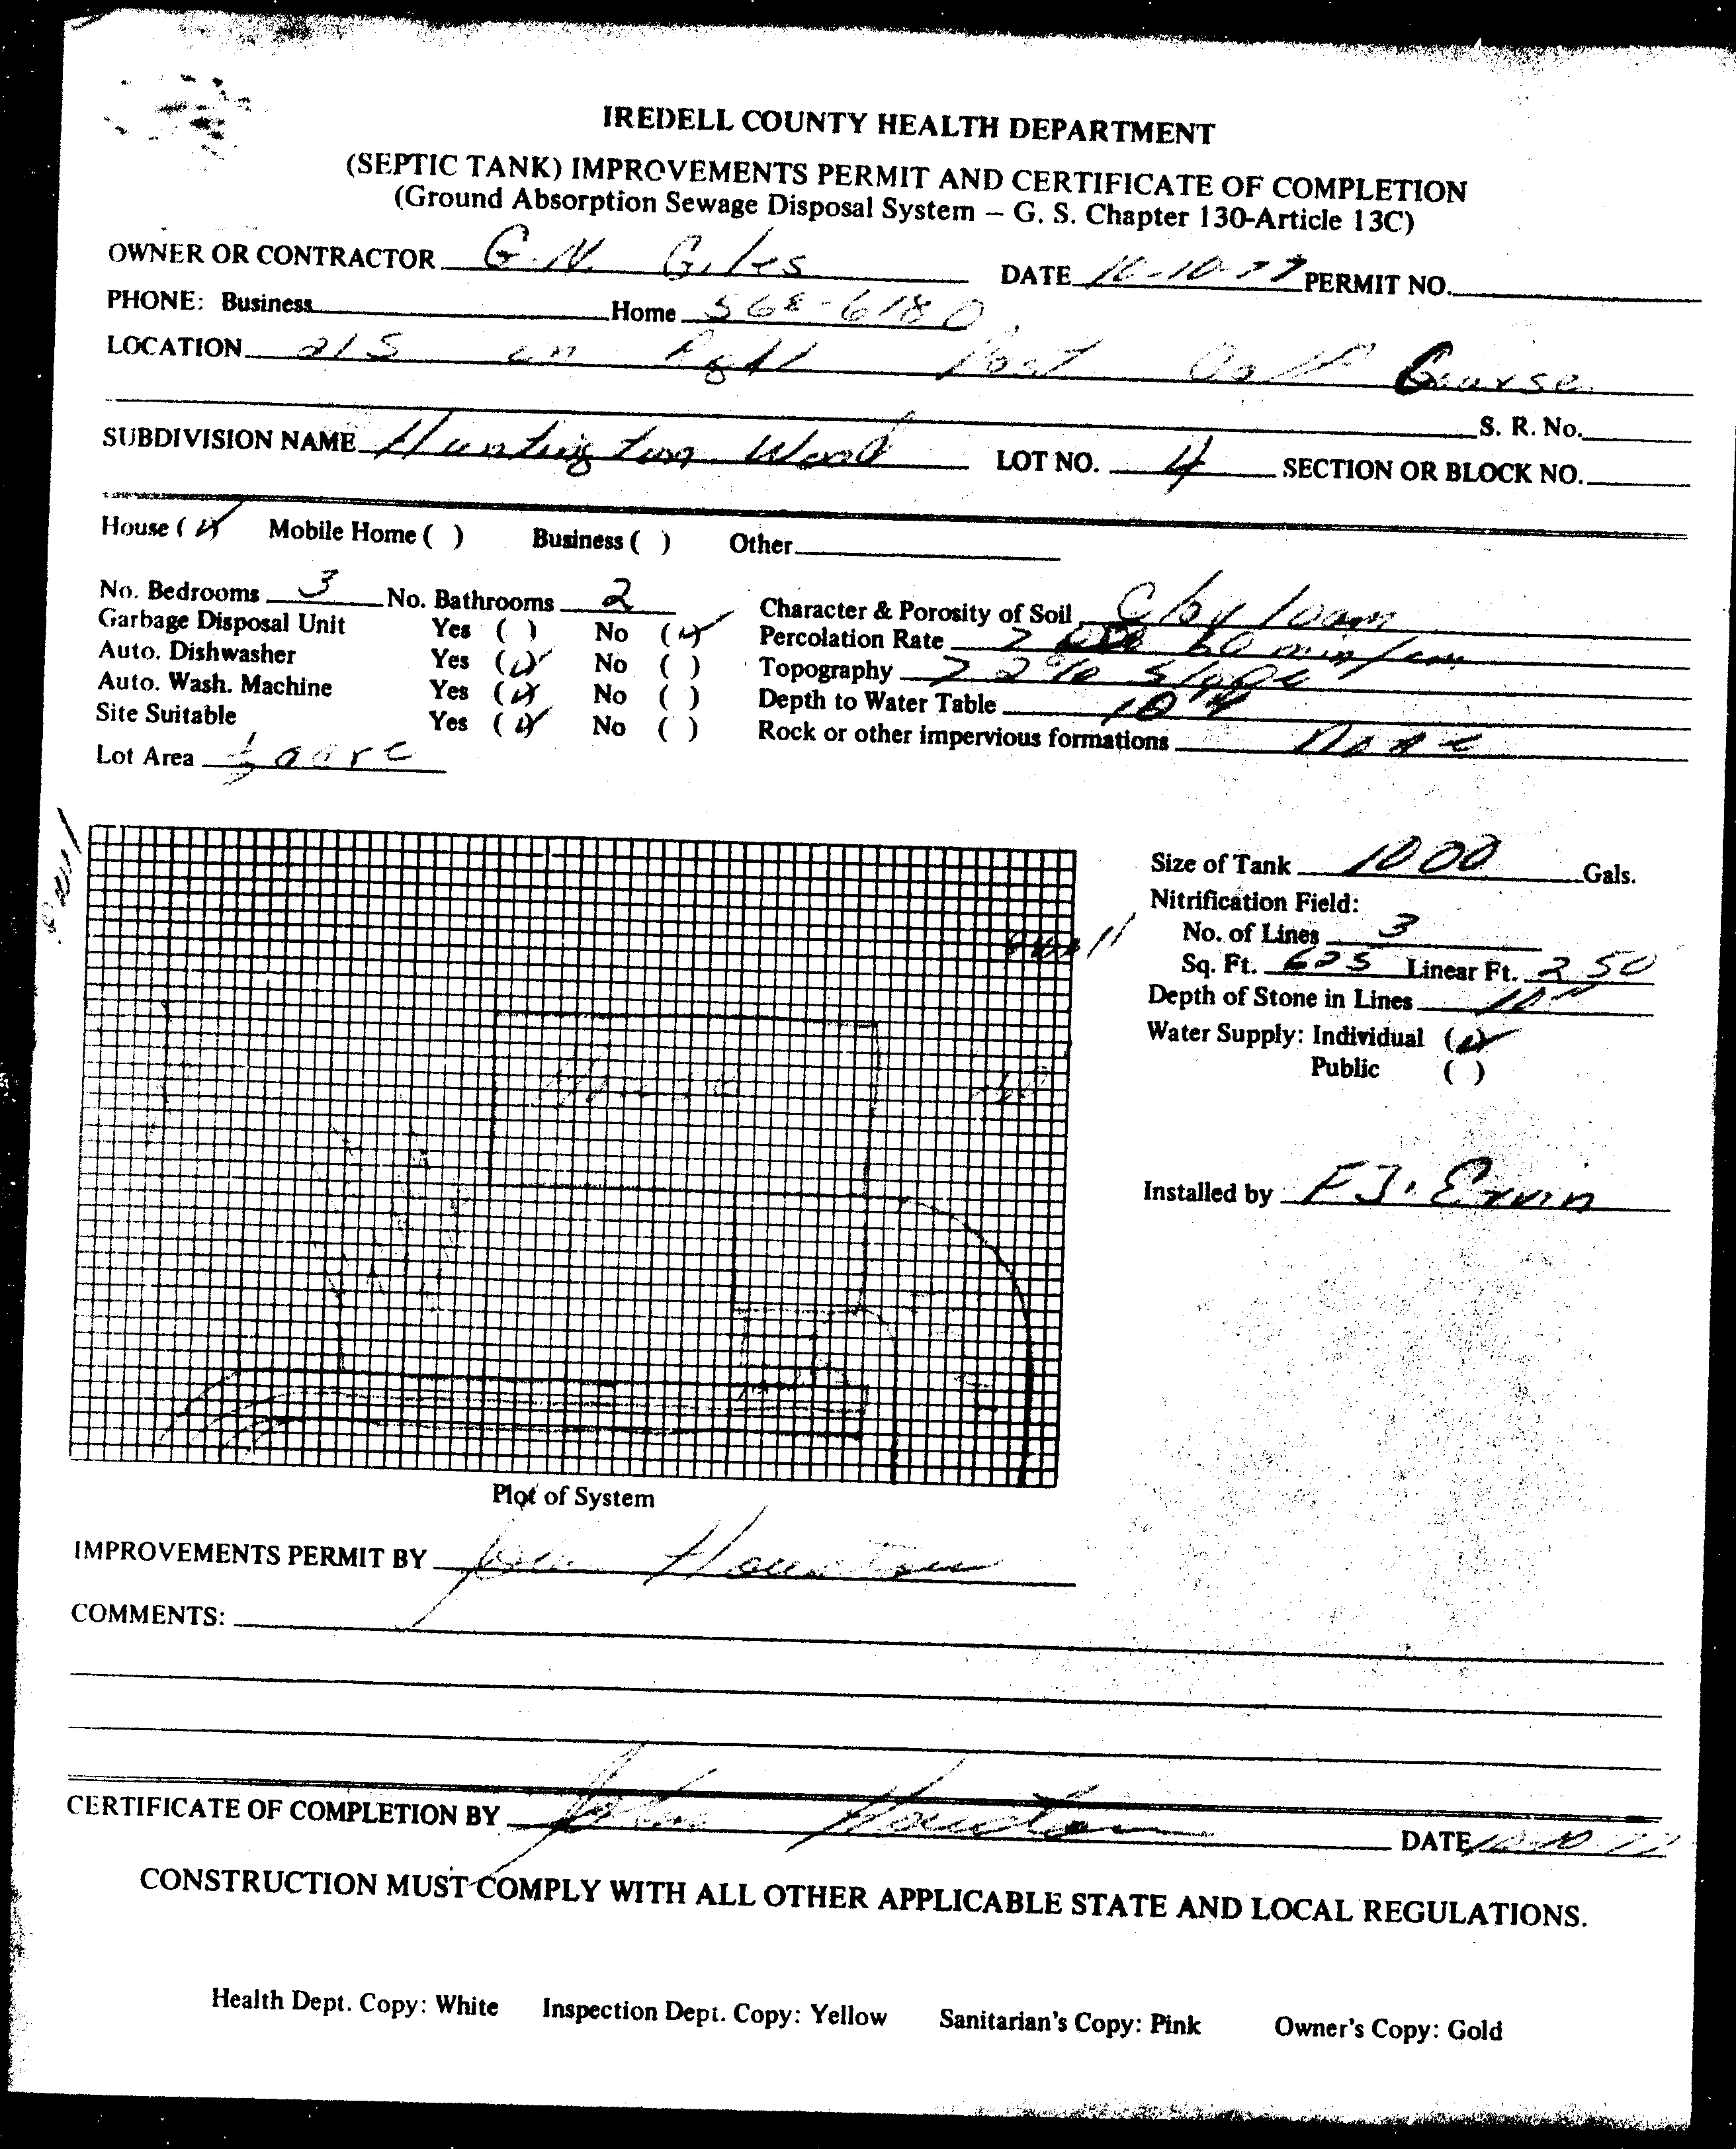 IREDELL COUNTY HEALTH DEPARTMENT
(SEPTIC TANK) IMPROVEMENTS PERMIT AND CERTIFICATE OF COMPLETION
(Ground Absorption Sewage Disposal System – G. S. Chapter 130-Article 13C)
OWNER OR CONTRACTOR G.N. Giles DATE 10-10-77 PERMIT NO.
PHONE: Business Home 568-6180
LOCATION 21S on Right Past Golf Course
S. R. No.
SUBDIVISION NAME Huntington Wood LOT NO. 4 SECTION OR BLOCK NO.
House (✓) Mobile Home ( ) Business ( ) Other
No. Bedrooms 3 No. Bathrooms 2 Character & Porosity of Soil Clay loam
Garbage Disposal Unit Yes ( ) No (✓) Percolation Rate > 60 min/cm
Auto. Dishwasher Yes (✓) No ( ) Topography > 2% Slope
Auto. Wash. Machine Yes (✓) No ( ) Depth to Water Table
Site Suitable Yes (✓) No ( ) Rock or other impervious formations None
Lot Area ½ acre
Size of Tank 1000 Gals.
Nitrification Field:
well
No. of Lines 3
Sq. Ft. 625 Linear Ft. 250
Depth of Stone in Lines
Water Supply: Individual (✓)
Public ( )
House
Installed by F.J. Ervin
Plot of System
IMPROVEMENTS PERMIT BY John Houston
COMMENTS:
CERTIFICATE OF COMPLETION BY John Houston DATE
CONSTRUCTION MUST COMPLY WITH ALL OTHER APPLICABLE STATE AND LOCAL REGULATIONS.
Health Dept. Copy: White Inspection Dept. Copy: Yellow Sanitarian's Copy: Pink Owner's Copy: Gold